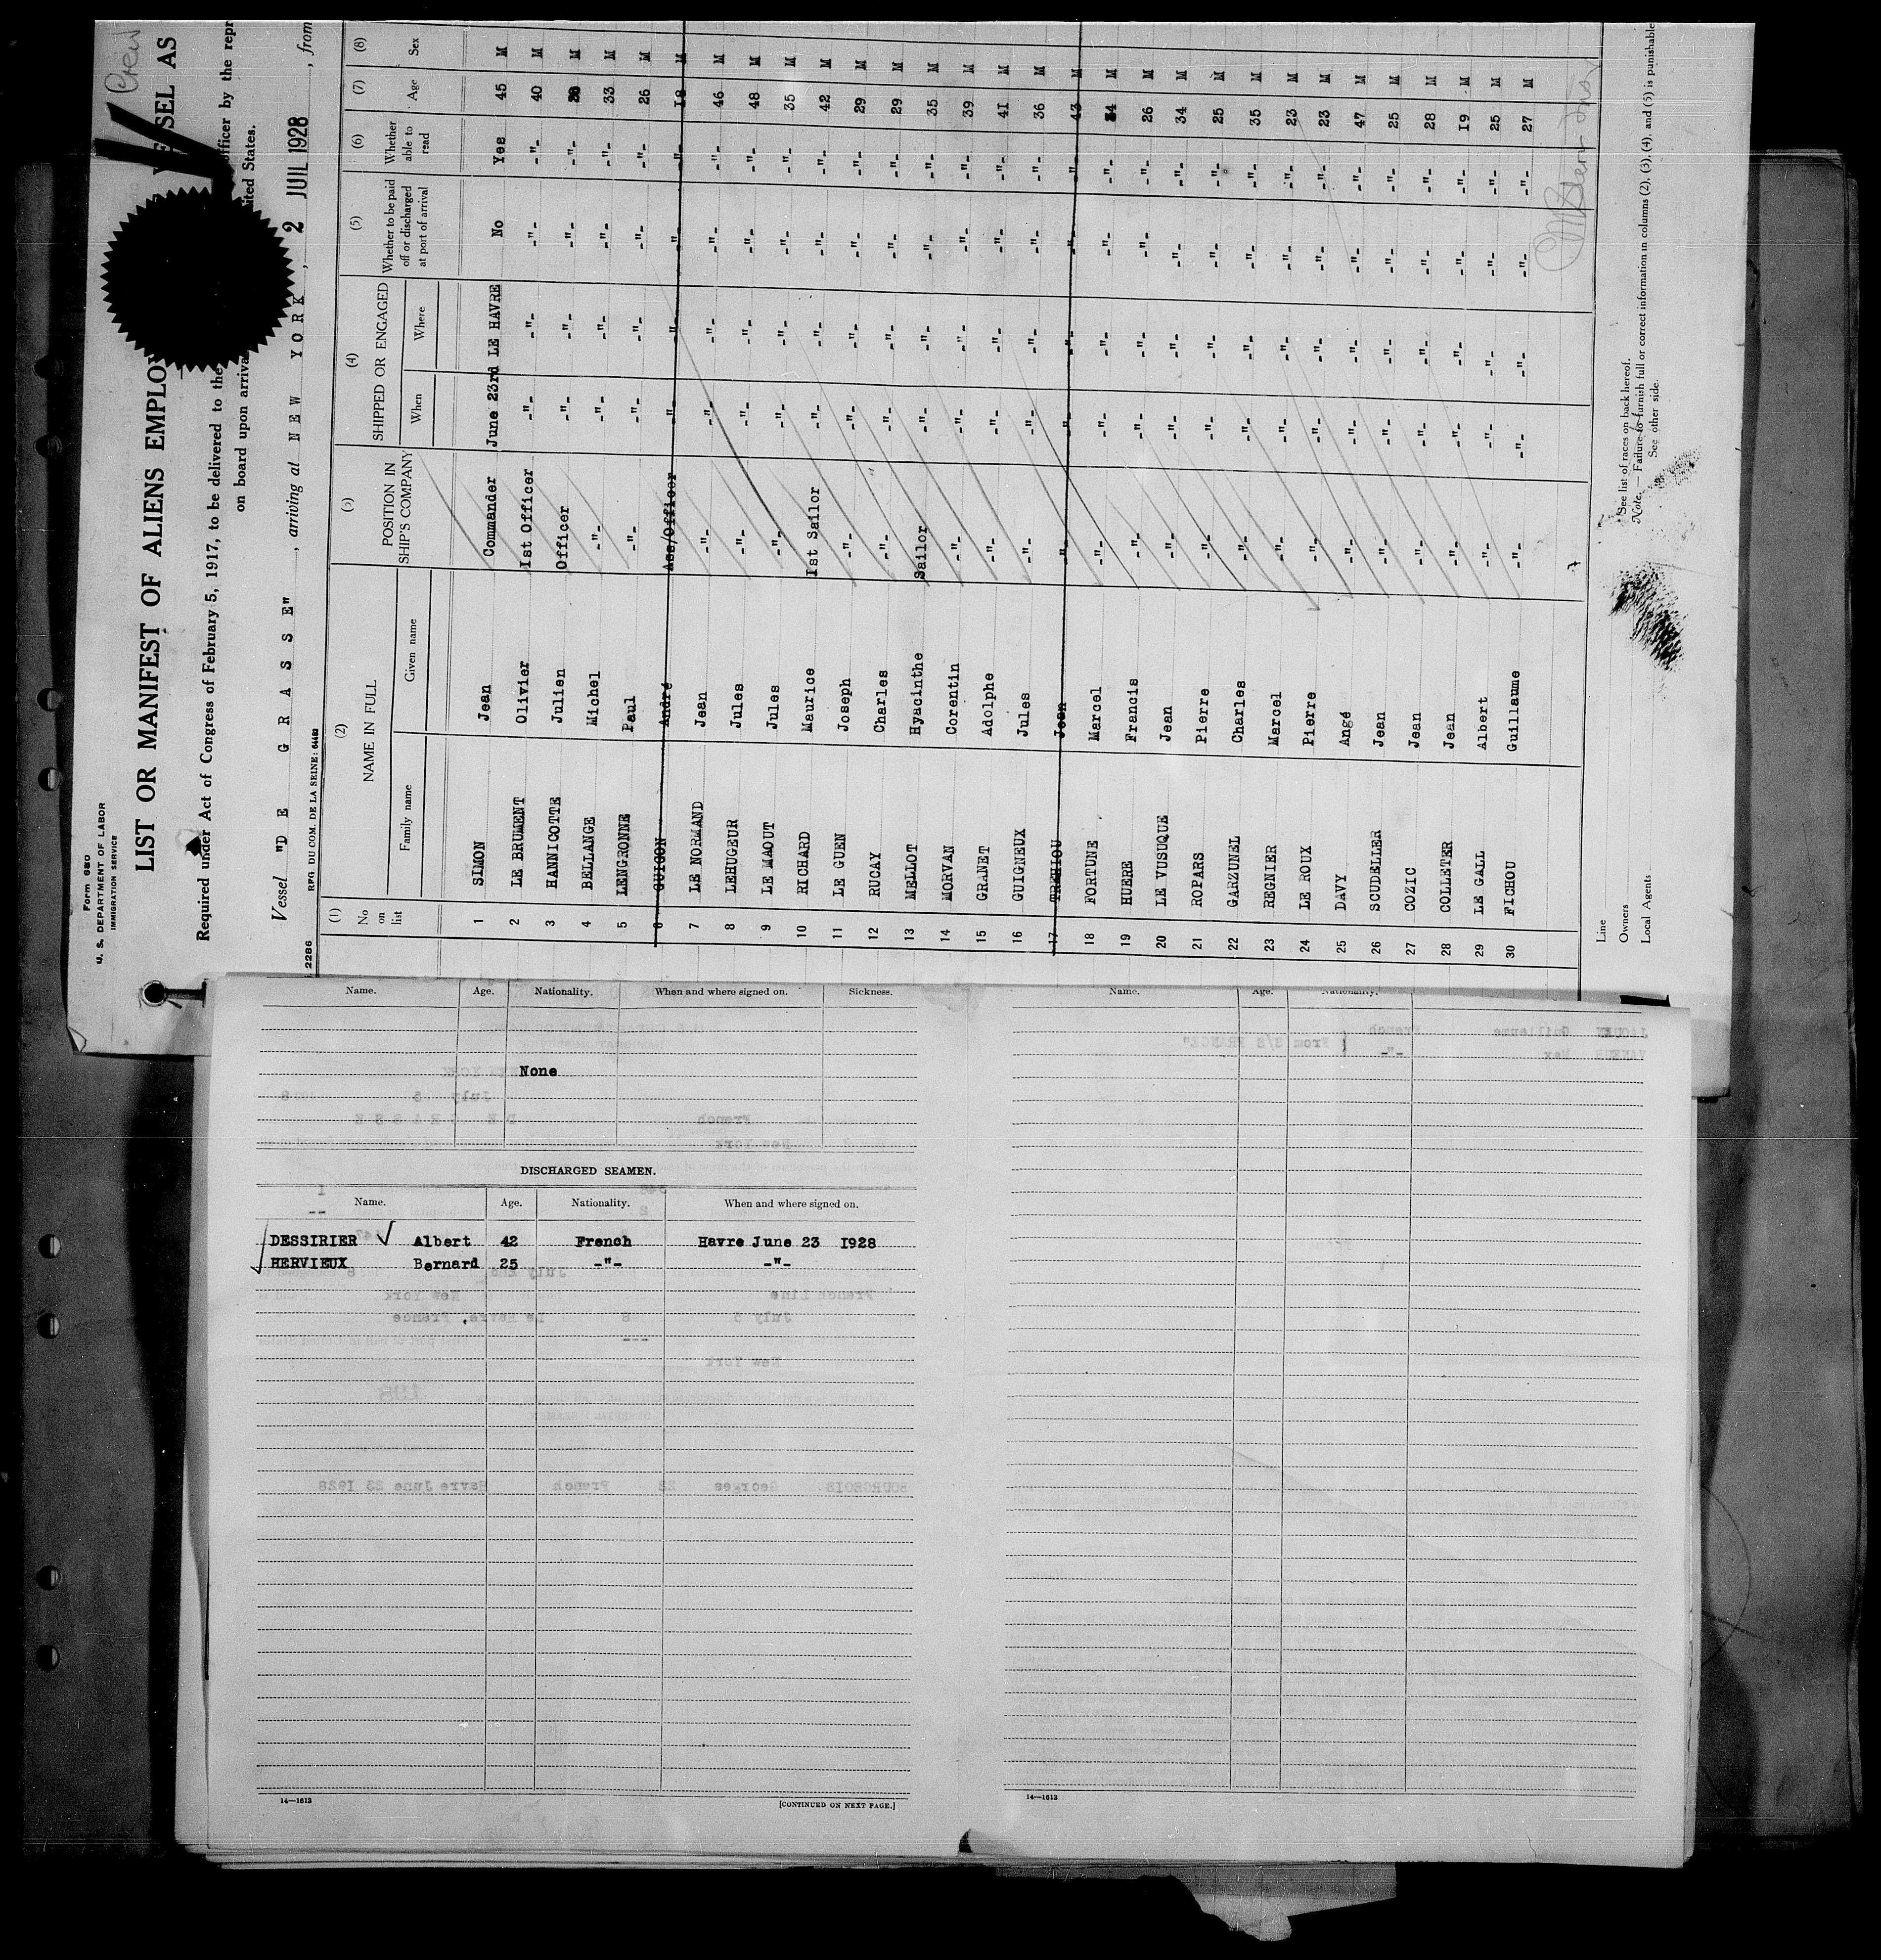 Crew
Form 680
U. S. DEPARTMENT OF LABOR
IMMIGRATION SERVICE
LIST OR MANIFEST OF ALIENS EMPLOY SEL AS
Required under Act of Congress of February 5, 1917, to be delivered to the officer by the repr
on board upon arriva ited States.
Vessel "DE GRASSE", arriving at NEW YORK, 2 JUIL 1928, from
2286 REG. DU COM. DE LA SEINE: 64462
(1) (2) (3) (4) (5) (6) (7) (8)
No on list NAME IN FULL POSITION IN SHIP'S COMPANY SHIPPED OR ENGAGED Whether to be paid off or discharged at port of arrival Whether able to read Age Sex
Family name Given name When Where
1 SIMON Jean Commander June 23rd LE HAVRE No Yes 45 M
2 LE BRUMENT Olivier 1st Officer -"- -"- -"- -"- 40 M
3 HANNICOTTE Julien Officer -"- -"- -"- -"- M
4 BELLANGE Michel -"- -"- -"- -"- -"- 33 M
5 LENGRONNE Paul -"- -"- -"- -"- -"- 26 M
6 GUIGON André Ass/Officer -"- -"- -"- -"- 18 M
7 LE NORMAND Jean -"- -"- -"- -"- -"- 46 M
8 LEHUGEUR Jules -"- -"- -"- -"- -"- 48 M
9 LE MAOUT Jules -"- -"- -"- -"- -"- 35 M
10 RICHARD Maurice 1st Sailor -"- -"- -"- -"- 42 M
11 LE GUEN Joseph -"- -"- -"- -"- -"- 29 M
12 RUCAY Charles -"- -"- -"- -"- -"- 29 M
13 MELLOT Hyacinthe Sailor -"- -"- -"- -"- 35 M
14 MORVAN Corentin -"- -"- -"- -"- -"- 39 M
15 GRANET Adolphe -"- -"- -"- -"- -"- 41 M
16 GUIGNEUX Jules -"- -"- -"- -"- -"- 36 M
17 TREHIOU Jean -"- -"- -"- -"- -"- 43 M
18 FORTUNE Marcel -"- -"- -"- -"- -"- 34 M
19 HUERE Francis -"- -"- -"- -"- -"- 26 M
20 LE VUSUQUE Jean -"- -"- -"- -"- -"- 34 M
21 ROPARS Pierre -"- -"- -"- -"- -"- 25 M
22 GARZUNEL Charles -"- -"- -"- -"- -"- 35 M
23 REGNIER Marcel -"- -"- -"- -"- -"- 23 M
24 LE ROUX Pierre -"- -"- -"- -"- -"- 23 M
25 DAVY Angé -"- -"- -"- -"- -"- 47 M
26 SCUDELLER Jean -"- -"- -"- -"- -"- 25 M
27 COZIC Jean -"- -"- -"- -"- -"- 28 M
28 COLLETER Jean -"- -"- -"- -"- -"- 19 M
29 LE GALL Albert -"- -"- -"- -"- -"- 25 M
30 FICHOU Guillaume -"- -"- -"- -"- -"- 27 M
Line
Owners
Local Agents
See list of races on back hereof.
Note. — Failure to furnish full or correct information in columns (2), (3), (4), and (5) is punishable
See other side.
Name. Age. Nationality. When and where signed on. Sickness.
None
DISCHARGED SEAMEN.
Name. Age. Nationality. When and where signed on.
DESSIRIER Albert 42 French Havre June 23 1928
HERVIEUX Bernard 25 -"- -"-
14—1613
[CONTINUED ON NEXT PAGE.]
Name. Age. Nationality.
14—1613